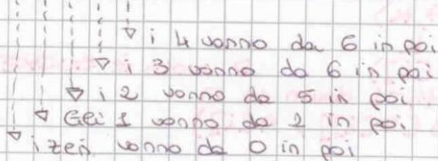 i 4 vanno da 6 in poi
i 3 vanno da 6 in poi
i 2 vanno da 5 in poi
Gli 1 vanno da 2 in poi
i zeri vanno da 0 in poi